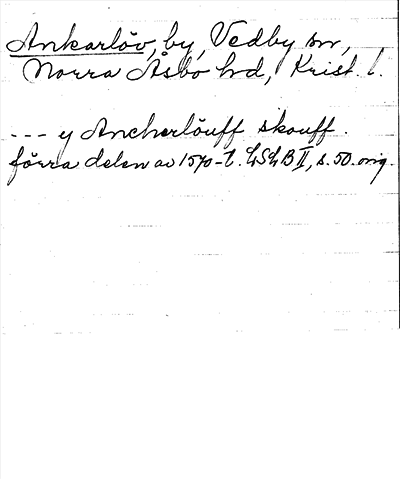 Ankarlöv, by, Vedby sn,
Norra Åsbo hd, Krist. l.
--- y Ancherlöuff skouff.
förra delen av 1570-t. LSLB II, s. 50. orig.